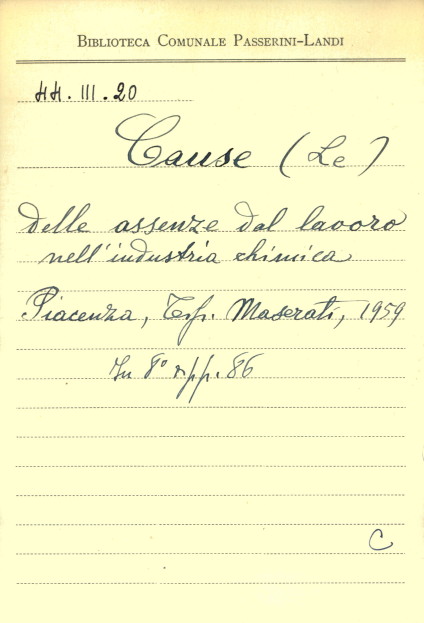 BIBLIOTECA COMUNALE PASSERINI-LANDI
44.III.20
Cause (Le)
delle assenze dal lavoro
nell'industria chimica
Piacenza, Tip. Maserati, 1959
In 8° pp. 86
C